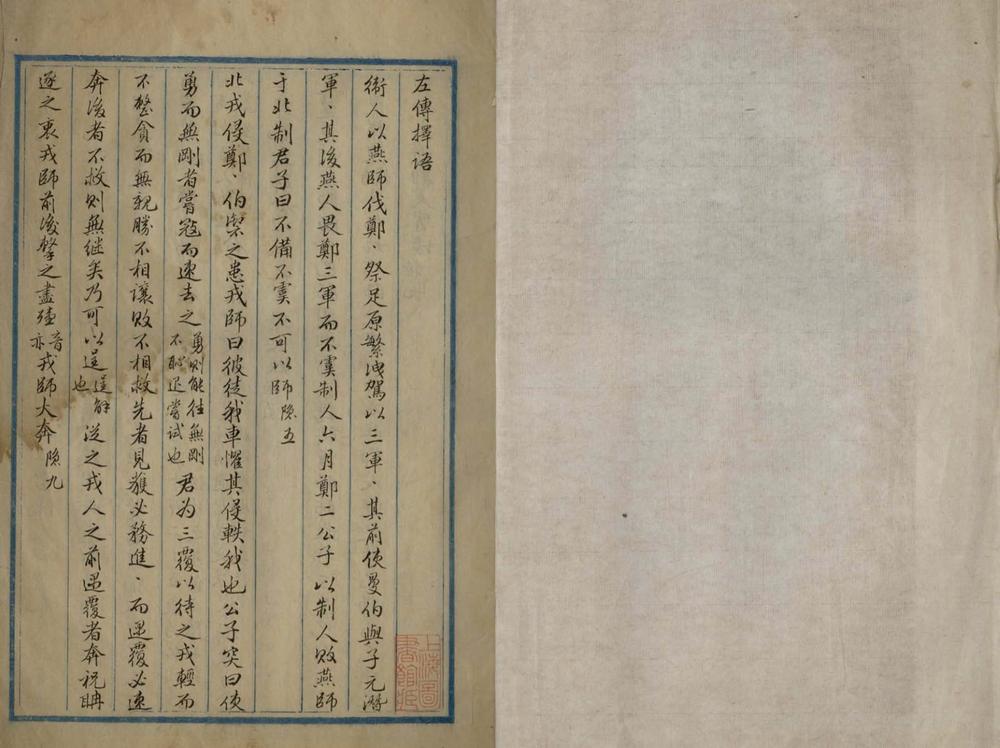 左傳擇語
衛人以燕師伐鄭、祭足原繁洩駕以三軍、其前使曼伯與子元潛
軍、其後燕人畏鄭三軍而不虞制人六月鄭二公子以制人敗燕師
于北制君子曰不備不虞不可以師 隱五
北戎侵鄭、伯禦之患戎師曰彼徒我車懼其侵軼我也公子突曰使
勇而無剛者嘗寇而速去之 勇則能往無剛不恥退嘗試也 君為三覆以待之戎輕而
不整貪而無親勝不相讓敗不相救先者見獲必務進、而遇覆必速
奔後者不救則無継矣乃可以逞 逞解也 從之戎人之前遇覆者奔祝聃
逐之衷戎師前後擊之盡殪 音亦 戎師大奔 隱九
上海圖書館藏